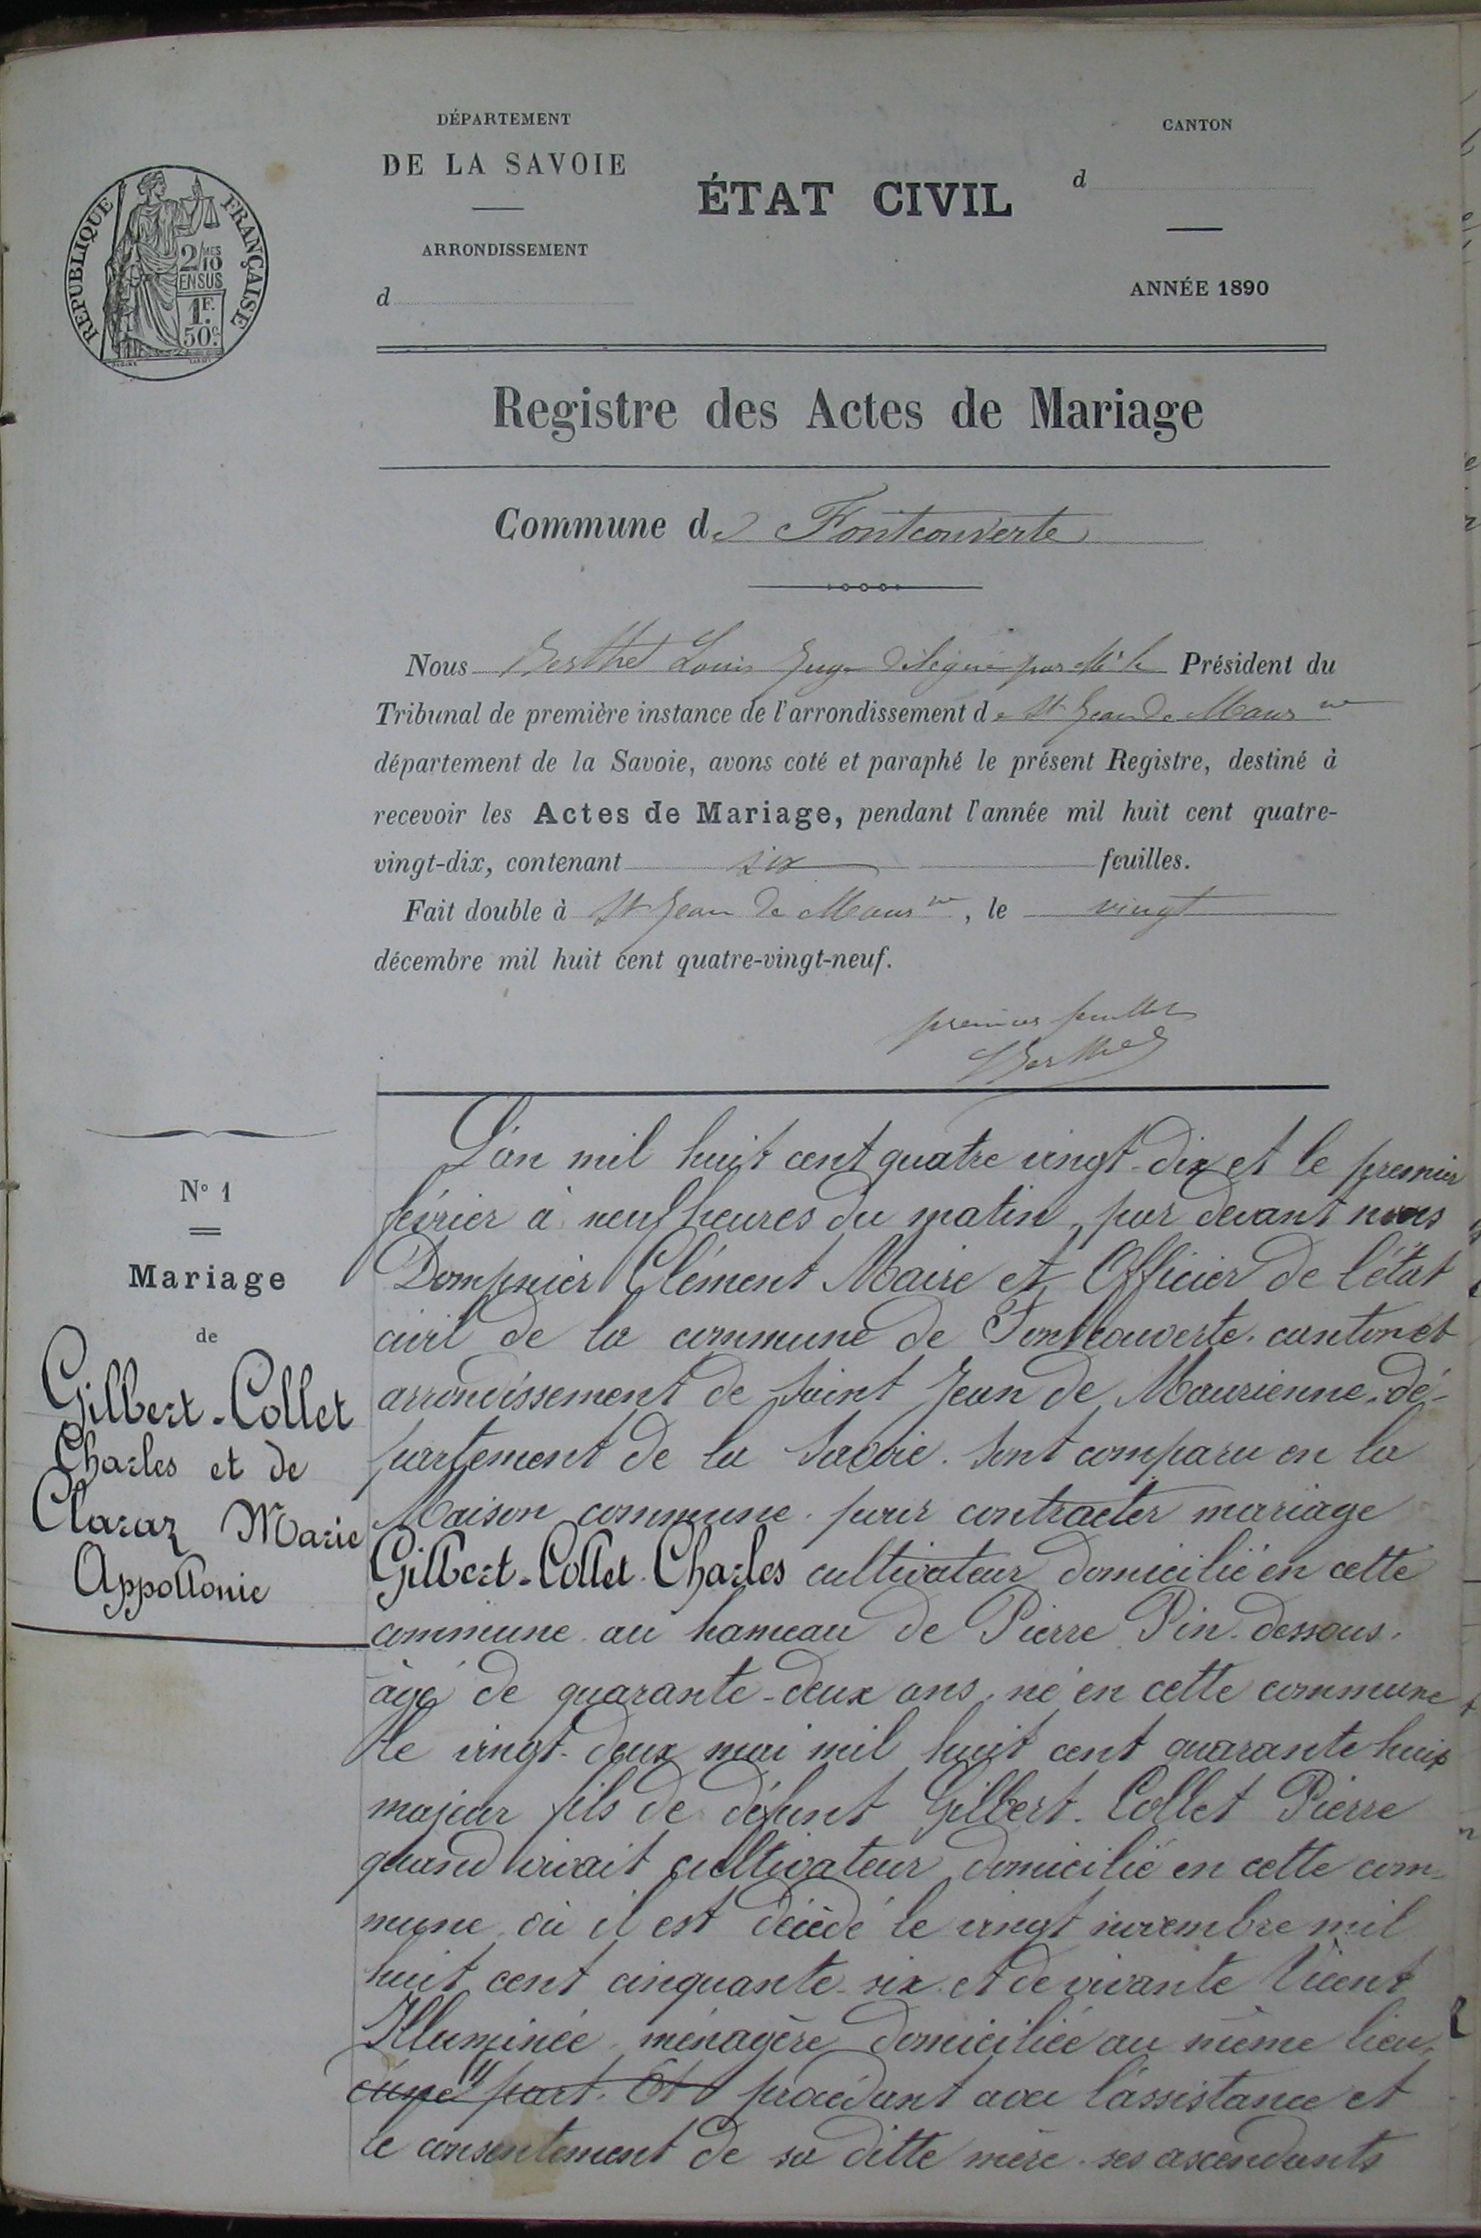 DÉPARTEMENT
DE LA SAVOIE
ARRONDISSEMENT
d
ÉTAT CIVIL
CANTON
d
ANNÉE 1890
REPUBLIQUE FRANÇAISE
2/10 MES
EN SUS
1F.
50c.
Registre des Actes de Mariage
Commune de Fontcouverte
Nous Berthet Louis Juge délégué par Mr le Président du
Tribunal de première instance de l'arrondissement de St Jean de Maurne
département de la Savoie, avons coté et paraphé le présent Registre, destiné à
recevoir les Actes de Mariage, pendant l'année mil huit cent quatre-
vingt-dix, contenant six feuilles.
Fait double à St Jean de Maurne, le vingt
décembre mil huit cent quatre-vingt-neuf.
premier feuillet
Berthet
N° 1
Mariage
de
Gilbert-Collet
Charles et de
Claraz Marie
Appollonie
L'an mil huit cent quatre vingt-dix et le premier
février à neuf heures du matin, par devant nous
Dompnier Clément Maire et Officier de l'état
civil de la commune de Fontcouverte, canton et
arrondissement de Saint Jean de Maurienne, dé-
partement de la Savoie. Sont comparu en la
Maison commune. pour contracter mariage
Gilbert-Collet Charles cultivateur domicilié en cette
commune au hameau de Pierre Pin-dessous,
âgé de quarante-deux ans, né en cette commune
le vingt-deux mai mil huit cent quarante huit
majeur fils de défunt Gilbert-Collet Pierre
quand vivait cultivateur domicilié en cette com-
mune où il est décédé le vingt novembre mil
huit cent cinquante-six et de vivante Vicent
Illuminée, ménagère domiciliée au même lieu,
d'une part. Et procédant avec l'assistance et
le consentement de sa ditte mère. ses ascendants